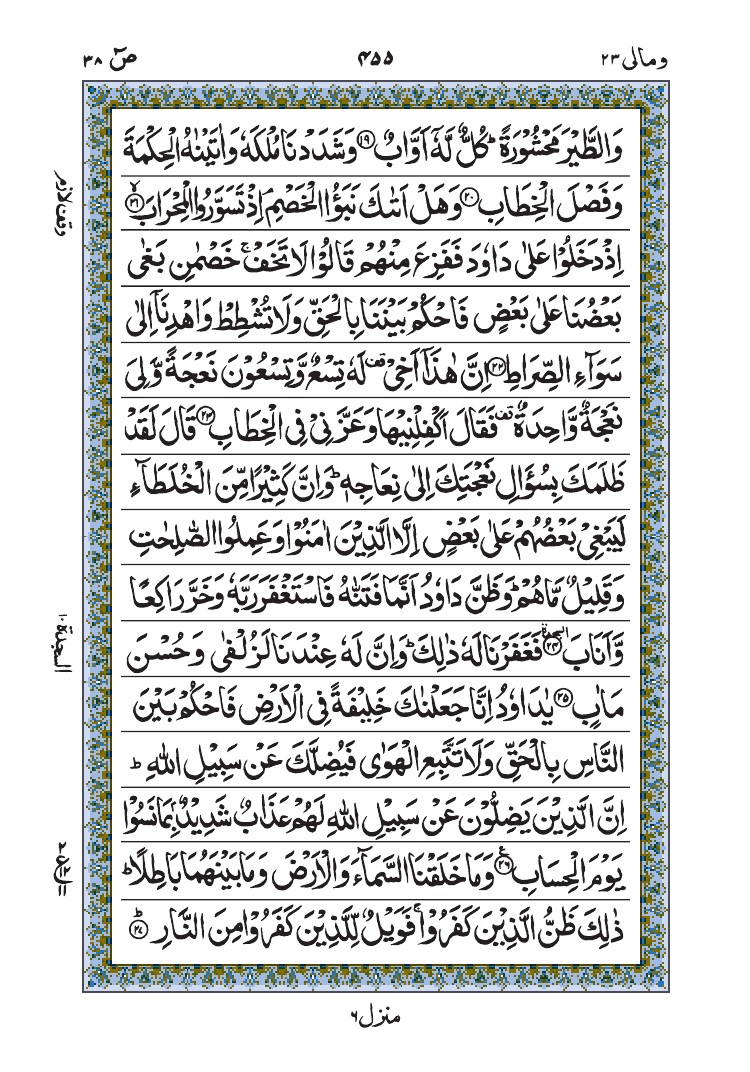 ومالی ٢٣ ۴۵۵ صٓ ٣٨
وَالطَّيْرَ مَحْشُوْرَةً ؕ كُلٌّ لَّهٗۤ اَوَّابٌ ⑲ وَشَدَدْنَا مُلْكَهٗ وَاٰتَيْنٰهُ الْحِكْمَةَ
وَفَصْلَ الْخِطَابِ ⑳ وَهَلْ اَتٰىكَ نَبَؤُا الْخَصْمِ ۘ اِذْ تَسَوَّرُوا الْمِحْرَابَ ㉑
وقف لازم
اِذْ دَخَلُوْا عَلٰى دَاوٗدَ فَفَزِعَ مِنْهُمْ قَالُوْا لَا تَخَفْ ۚ خَصْمٰنِ بَغٰى
بَعْضُنَا عَلٰى بَعْضٍ فَاحْكُمْ بَيْنَنَا بِالْحَقِّ وَلَا تُشْطِطْ وَاهْدِنَاۤ اِلٰى
سَوَآءِ الصِّرَاطِ ㉒ اِنَّ هٰذَاۤ اَخِيْ ࣞ لَهٗ تِسْعٌ وَّتِسْعُوْنَ نَعْجَةً وَّلِيَ
نَعْجَةٌ وَّاحِدَةٌ ࣞ فَقَالَ اَكْفِلْنِيْهَا وَعَزَّنِيْ فِي الْخِطَابِ ㉓ قَالَ لَقَدْ
ظَلَمَكَ بِسُؤَالِ نَعْجَتِكَ اِلٰى نِعَاجِهٖ ؕ وَاِنَّ كَثِيْرًا مِّنَ الْخُلَطَآءِ
لَيَبْغِيْ بَعْضُهُمْ عَلٰى بَعْضٍ اِلَّا الَّذِيْنَ اٰمَنُوْا وَعَمِلُوا الصّٰلِحٰتِ
وَقَلِيْلٌ مَّا هُمْ ؕ وَظَنَّ دَاوٗدُ اَنَّمَا فَتَنّٰهُ فَاسْتَغْفَرَ رَبَّهٗ وَخَرَّ رَاكِعًا
وَّاَنَابَ ㉔ فَغَفَرْنَا لَهٗ ذٰلِكَ ؕ وَاِنَّ لَهٗ عِنْدَنَا لَزُلْفٰى وَحُسْنَ
السجدة ١٠
مَاٰبٍ ㉕ يٰدَاوٗدُ اِنَّا جَعَلْنٰكَ خَلِيْفَةً فِي الْاَرْضِ فَاحْكُمْ بَيْنَ
النَّاسِ بِالْحَقِّ وَلَا تَتَّبِعِ الْهَوٰى فَيُضِلَّكَ عَنْ سَبِيْلِ اللهِ ؕ
اِنَّ الَّذِيْنَ يَضِلُّوْنَ عَنْ سَبِيْلِ اللهِ لَهُمْ عَذَابٌ شَدِيْدٌۢ بِمَا نَسُوْا
يَوْمَ الْحِسَابِ ㉖ وَمَا خَلَقْنَا السَّمَآءَ وَالْاَرْضَ وَمَا بَيْنَهُمَا بَاطِلًا ؕ
ذٰلِكَ ظَنُّ الَّذِيْنَ كَفَرُوْا ۚ فَوَيْلٌ لِّلَّذِيْنَ كَفَرُوْا مِنَ النَّارِ ㉗
منزل ۶